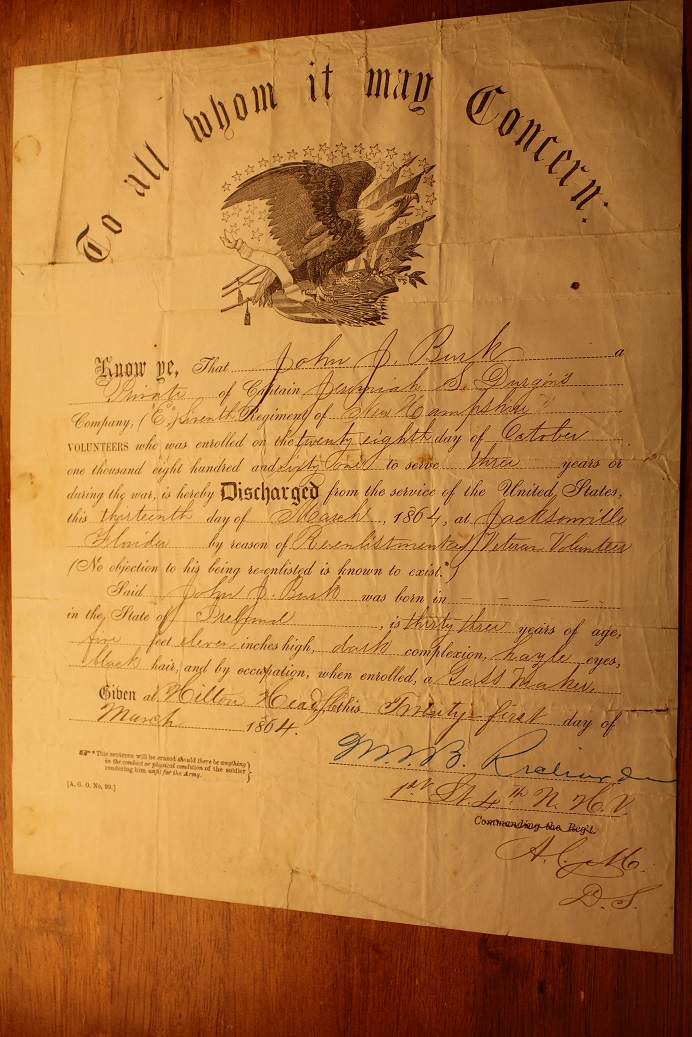 To all whom it may Concern:
Know ye, That John J. Burk a
Private of Captain Jeremiah S. Durgin's
Company, (E,) Seventh Regiment of New Hampshire
VOLUNTEERS who was enrolled on the twenty eighth day of October
one thousand eight hundred and sixty one to serve three years or
during the war, is hereby Discharged from the service of the United States,
this thirteenth day of March, 1864, at Jacksonville
Florida by reason of Re-enlistment as Veteran Volunteer
(No objection to his being re-enlisted is known to exist.*)
Said John J. Burk was born in
in the State of Ireland, is thirty three years of age,
five feet eleven inches high, dark complexion, hazle eyes,
black hair, and by occupation, when enrolled, a
Given at Hilton Head S.C. this Twenty-first day of
March 1864.
☞ *This sentence will be erased should there be anything
in the conduct or physical condition of the soldier
rendering him unfit for the Army.
[A. G. O. No. 99.]
B. Richardson
1st Lt. 4th N. H. V.
Commanding the Reg't.
A. C. M.
D. S.